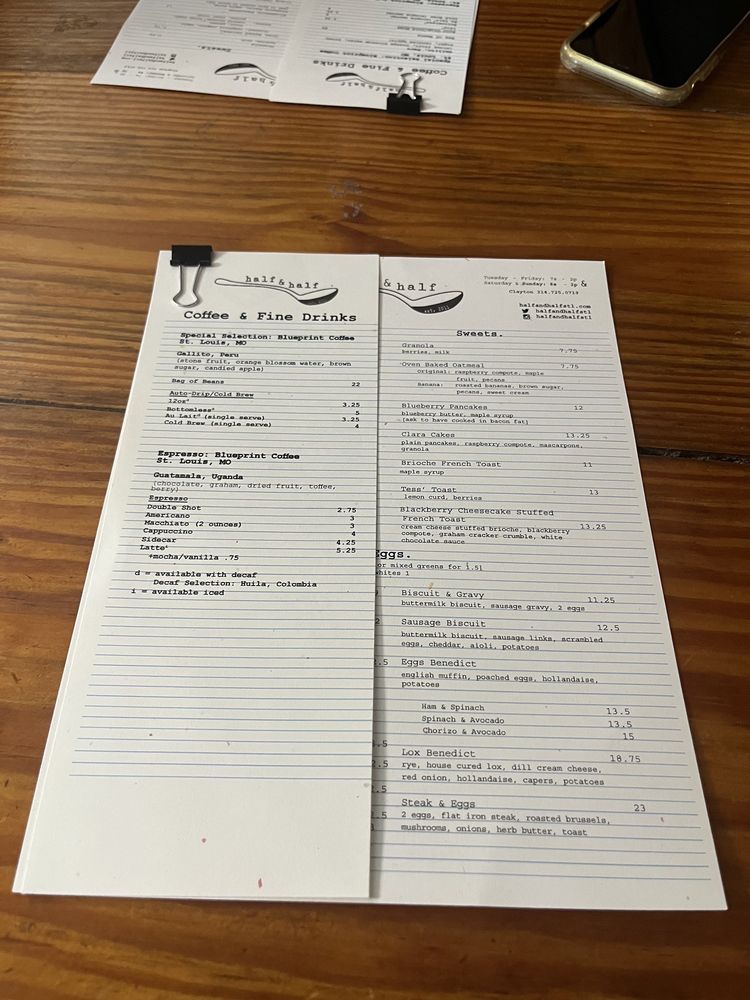 Sweets.
half & half
Coffee & Fine Drinks
half & half
Coffee & Fine Drinks
Special Selection: Blueprint Coffee
St. Louis, MO
Gallito, Peru
(stone fruit, orange blossom water, brown
sugar, candied apple)
Bag of Beans 22
Auto-Drip/Cold Brew
12oz 3.25
Bottomless 5
Au Lait (single serve) 3.25
Cold Brew (single serve) 4
Espresso: Blueprint Coffee
St. Louis, MO
Guatamala, Uganda
(chocolate, graham, dried fruit, toffee,
berry)
Espresso
Double Shot 2.75
Americano 3
Macchiato (2 ounces) 3
Cappuccino 4
Sidecar 4.25
Latte 5.25
+mocha/vanilla .75
d = available with decaf
Decaf Selection: Huila, Colombia
i = available iced
& half
est. 2011
Tuesday - Friday: 7a - 2p
Saturday & Sunday: 8a - 2p &
Clayton 314.725.0719
halfandhalfstl.com
halfandhalfstl
halfandhalfstl
Sweets.
Granola 7.75
berries, milk
Oven Baked Oatmeal 7.75
Original: raspberry compote, maple
fruit, pecans
Banana: roasted bananas, brown sugar,
pecans, sweet cream
Blueberry Pancakes 12
blueberry butter, maple syrup
(ask to have cooked in bacon fat)
Clara Cakes 13.25
plain pancakes, raspberry compote, mascarpone,
granola
Brioche French Toast 11
maple syrup
Tess' Toast 13
lemon curd, berries
Blackberry Cheesecake Stuffed
French Toast 13.25
cream cheese stuffed brioche, blackberry
compote, graham cracker crumble, white
chocolate sauce
Eggs.
or mixed greens for 1.5]
whites 1
Biscuit & Gravy 11.25
buttermilk biscuit, sausage gravy, 2 eggs
Sausage Biscuit 12.5
buttermilk biscuit, sausage links, scrambled
eggs, cheddar, aioli, potatoes
Eggs Benedict
english muffin, poached eggs, hollandaise,
potatoes
Ham & Spinach 13.5
Spinach & Avocado 13.5
Chorizo & Avocado 15
Lox Benedict 18.75
rye, house cured lox, dill cream cheese,
red onion, hollandaise, capers, potatoes
Steak & Eggs 23
2 eggs, flat iron steak, roasted brussels,
mushrooms, onions, herb butter, toast